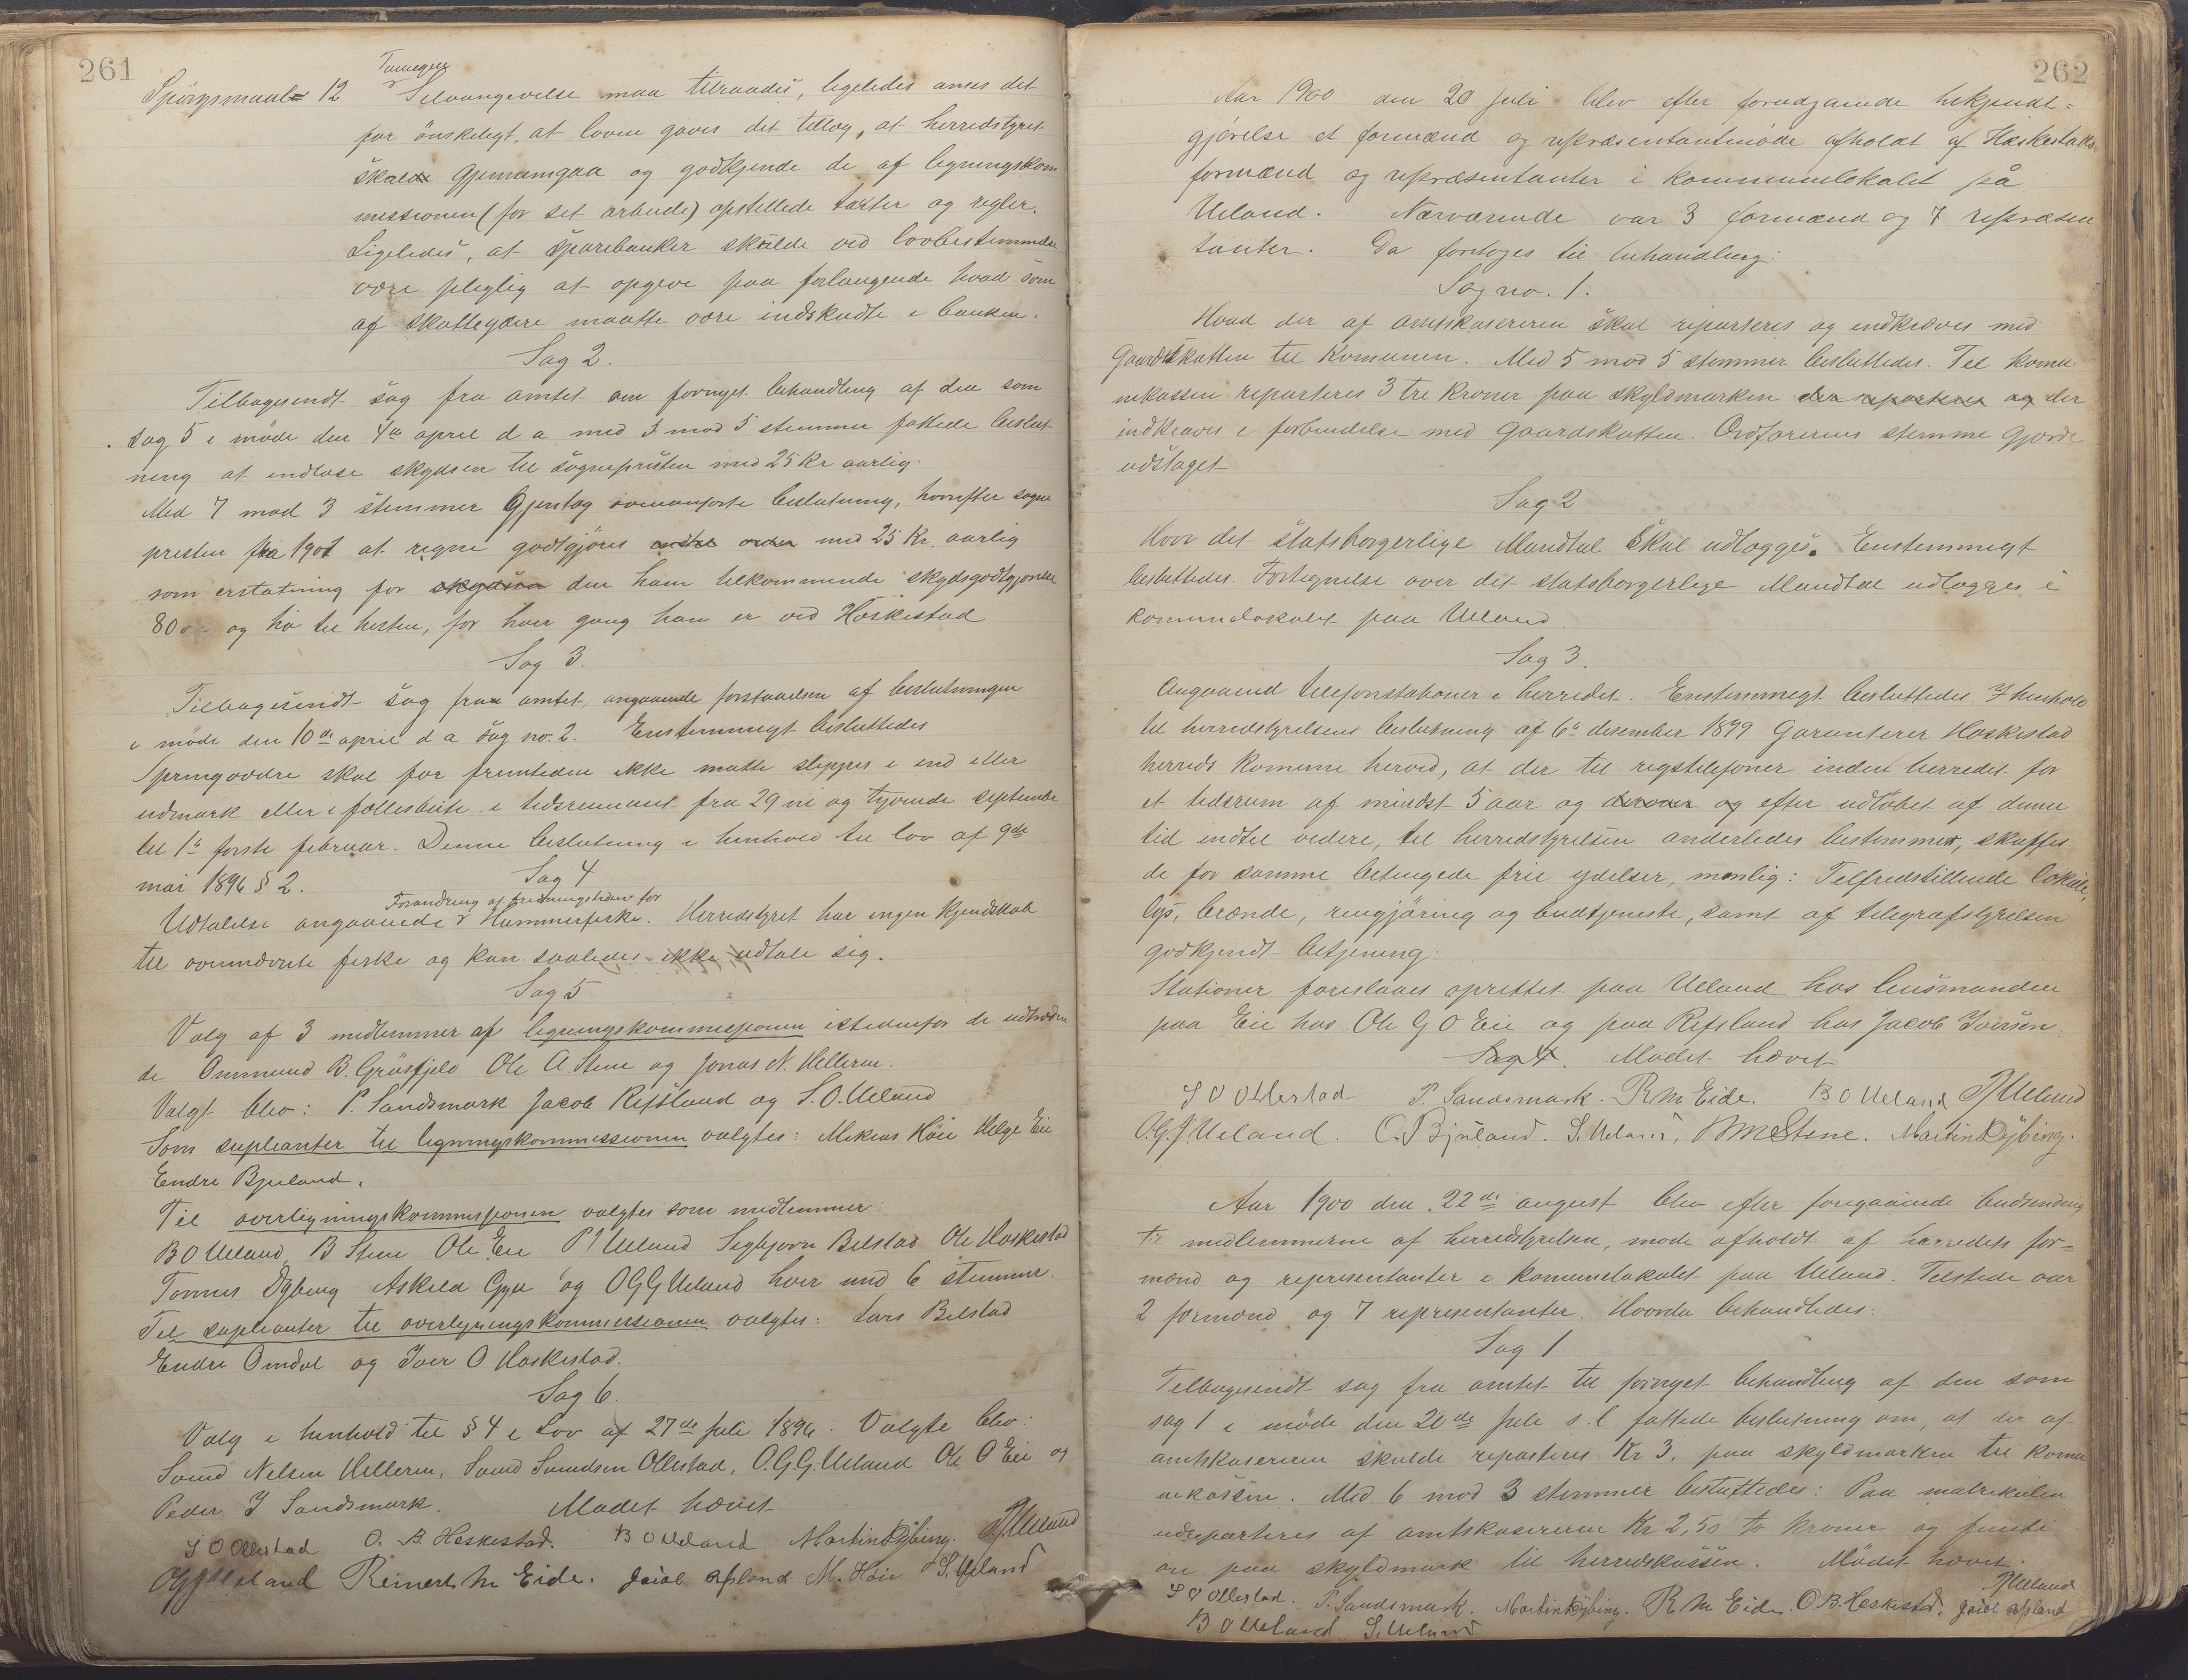 261
Spörgsmaal 12 Selvangivelse maa tilraades, ligeledes anses det
for önskeligt, at loven gaves det tillæg, at herredstyret
skal gjennemgaa og godkjende de af ligningskom
missionen (for set arbeide) opstillede taxter og regler.
Ligeledes, at sparebanker skulde ved lovbestemmelse
være pligtig at opgive paa forlangende hvad som
af skatteydere maatte være indskudte i banken.
Sag 2.
Tilbagesendt sag fra amtet om fornyet behandling af den som
sag 5 i møde den 4de april d a med 3 mod 5 stemmer fattede beslut
ning at indløse skydsen til sognepresten med 25 Kr aarlig.
Med 7 mod 3 stemmer Gjentag ovenanførte beslutning, hvorefter sogne
presten fra 1901 at regne godtgjöres med 25 Kr. aarlig
som erstatning for skydsen den ham tilkommende skydsgodtgjørelse
80 og hö til hesten, for hver gang han er ved Hæskestad
Sag 3.
Tilbagesendt sag fra amtet, angaaende forstaaelsen af beslutningen
i møde den 10de april d a sag no. 2. Enstemmigt besluttedes
Springvædre skal for fremtiden ikke maatte slippes i ind eller
udmark eller i fællesbeite i tidsrummet fra 29 ni og tyvende september
til 1ste første februar. Denne beslutning i henhold til lov af 9de
mai 1896 § 2.
Sag 4
Forandring af fredningstiden for
Udtalelse angaaende Hummerfiske. Herredstyret har ingen kjendskab
til ovennævnte fiske og kan saaledes ikke udtale sig.
Sag 5
Valg af 3 medlemmer af ligningskommissjonen istedenfor de udtræden
de Ommund B. Grössfjeld Ole A. Stene og Jonas N. Helleren.
Valgt blev: P. Sandsmark Jacob Refsland og S. O. Ueland
Som suplianter til ligningskommissionen valgtes: Mikias Höie Helge Eie
Endre Bjuland.
Til overligningskommissjonen valgtes som medlemmer
B O Ueland, B Stene Ole Eie P J Ueland Segbjørn Bilstad Ole Hæskestad
Tønnes Dybing Askild Gya og O G G Ueland hver med 6 stemmer.
Til suplianter til overligningskommissionen valgtes: Lars Bilstad
Endre Omdal og Iver O Hæskestad.
Sag 6.
Valg i henhold til § 4 i Lov af 27de juli 1896. Valgte blev:
Svend Nelsen Helleren, Svend Svendsen Ollestad, O. G. G. Ueland Ole O Eie og
Peder J Sandsmark. Mødet hævet
S O Ollestad O. B. Heskestad. B O Ueland Martin Dybing. P J Ueland
O G J Ueland Reinert M Eide. Jacob Refsland M. Höie S. Ueland
262
Aar 1900 den 20 juli blev efter forudgaaende bekjendt=
gjørelse et formænd og repræsentantmöde afholdt af Hæskestads
formænd og repræsentanter i kommunelokalet på
Ueland. Nærværende var 3 formænd og 7 repræsen
tanter. Da foretoges til behandling:
Sag no. 1.
Hvad der af amtskassereren skal reparteres og indkræves med
Gaardskatten til Komunen. Med 5 mod 5 stemmer besluttedes. Til komu
nekassen reparteres 3 tre kroner paa skyldmarken der reparteres og der
indkræves i forbindelse med Gaardskatten. Ordførerens stemme gjorde
udslaget
Sag 2
Hvor det statsborgerlige Mandtal skal udlægges. Enstemmigt
besluttedes. Fortegnelse over det statsborgerlige Mandtal udlægges i
komunelokalet paa Ueland.
Sag 3.
Angaaend telefonstationer i herredet. Enstemmigt besluttedes I henhold
til herredstyrelsens beslutning af 6te desember 1899 Garanterer Hæskestad
herreds Komune herved, at der til rigstelefoner inden herredet for
et tidsrum af mindst 5 aar og derover og efter udløbet af denne
tid indtil videre, til herredstyrelsen anderledes bestemmer, skaffes
de for samme betingede frie ydelser, nemlig: Tilfredstillende lokale,
lys, brænde, rengjöring og budtjeneste, samt af telegrafstyrelsen
godkjendt betjening.
Stationer foreslaaes oprettet paa Ueland hos lensmanden
paa Eie hos Ole G O Eie og paa Refsland hos Jacob Iversen.
Sag 4. Mødet hævet
S O Ollestad P. Sandsmark. R M Eide. B O Ueland P J Ueland
O. G. J Ueland. O. Bjuland. S. Ueland, B M Stene. Martin Dybing.
Aar 1900 den 22de august blev efter foregaaende budsending
til medlemmerne af herredstyrelsen, møde afholdt af herredets for=
mænd og representanter i Komunelokalet paa Ueland. Tilstede var
2 formænd og 7 representanter. Hvorda behandledes:
Sag 1
Tilbagesendt sag fra amtet til fornyet behandling af den som
sag 1 i møde den 20de juli s. l fattede beslutning om, at der af
amtskassereren skulde reparteres Kr 3. paa skyldmarken til komu
nekassen. Med 6 mod 3 stemmer besluttedes: Paa matrikulen
udreparteres af amtskassereren Kr 2,50 to kroner og femti
øre paa skyldmark til herredskassen. Mödet hævet.
S O Ollestad. P. Sandsmark. Martin Dybing. R M Eide. O. B. Heskestad. Jacob Refsland P J Ueland
B O Ueland S. Ueland